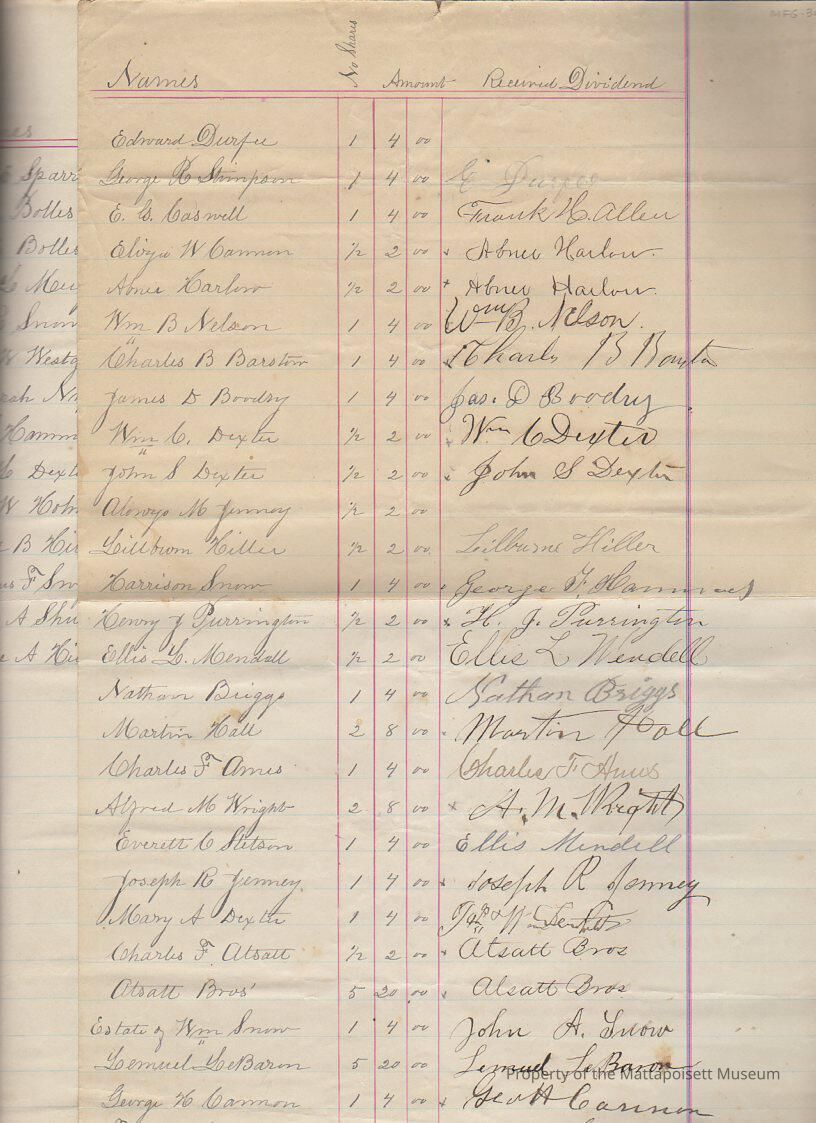 MFG-3
Names No Shares Amount Received Dividend
Edward Durfee 1 4 00
George R Stimpson 1 4 00 E Durfee
E. G. Caswell 1 4 00 Frank H. Allen
W Cannon 1/2 2 00 x Abner Harlow.
Abner Harlow 1/2 2 00 x Abner Harlow.
Wm B Nelson 1 4 00 Wm B. Nelson.
Charles B Barstow 1 4 00 x Charls B Barstow
James D Boodry 1 4 00 Jas. D Boodry
Wm C. Dexter 1/2 2 00 x Wm C Dexter
John S Dexter 1/2 2 00 x John S Dexter
Alonzo M Jenney 1/2 2 00
Lillburn Hiller 1/2 2 00 Lilburne Hiller
Harrison Snow 1 4 00 George F. Hammond
Henry J Purrington 1/2 2 00 x H. J. Purrington
Ellis L. Mendall 1/2 2 00 Ellis L Mendell
Nathan Briggs 1 4 00 Nathan Briggs
Martin Hall 2 8 00 x Martin Hall
Charles F Ames 1 4 00 Charles F Ames
Alfred M Wright 2 8 00 x A. M. Wright
Everett C Stetson 1 4 00 Ellis Mendell
Joseph R Jenney 1 4 00 x Joseph R Jenney
Mary A Dexter 1 4 00
Charles F. Atsatt 1/2 2 00 x Atsatt Bros
Atsatt Bros' 5 20 00 x Atsatt Bros
Estate of Wm Snow 1 4 00 John A. Snow
Lemuel LeBaron 5 20 00 Lemuel LeBaron
George H Cannon 1 4 00 x Geo H Cannon
Sparr
Bolles
Bolles
Snow
W Westg
Hamm
Dext
W Holm
B Hi
F Sn
A Shu
A Hi
Property of the Mattapoisett Museum